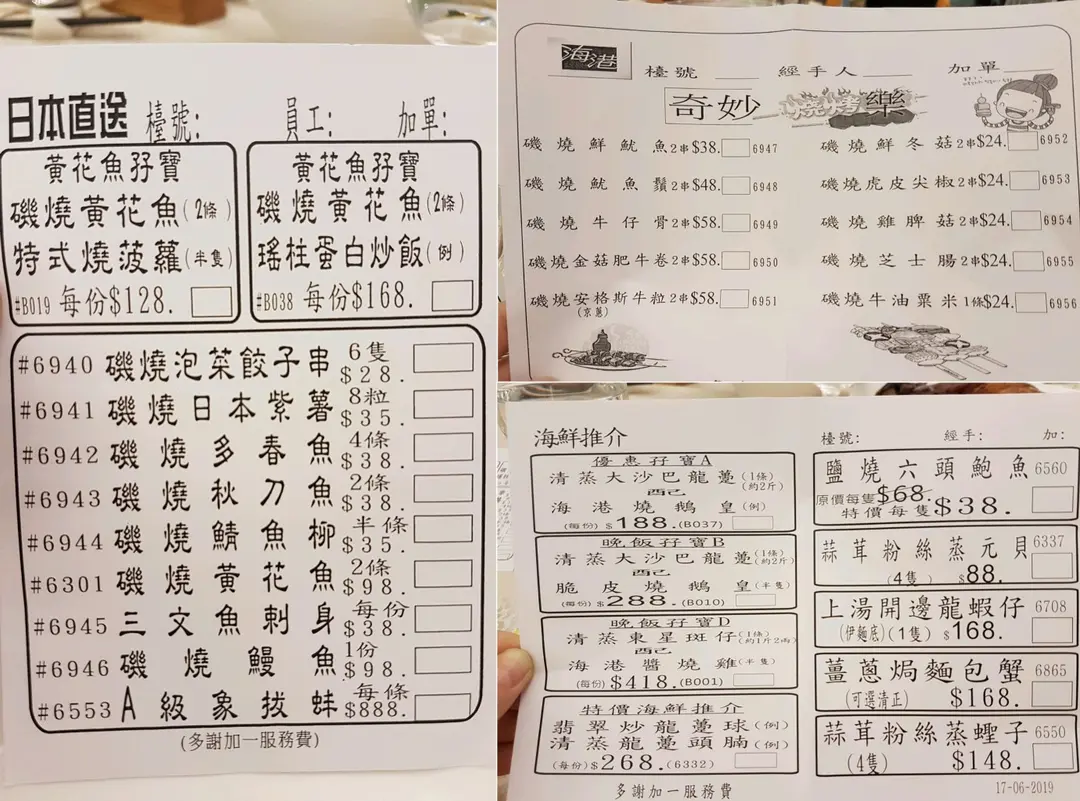 日本直送 檯號: 員工: 加單:
黃花魚孖寶
磯燒黃花魚(2條)
特式燒菠蘿(半隻)
#B019 每份$128.
黃花魚孖寶
磯燒黃花魚(2條)
瑤柱蛋白炒飯(例)
#B038 每份$168.
#6940 磯燒泡菜餃子串 6隻 $28.
#6941 磯燒日本紫薯 8粒 $35.
#6942 磯燒多春魚 4條 $38.
#6943 磯燒秋刀魚 2條 $38.
#6944 磯燒鯖魚柳 半條 $35.
#6301 磯燒黃花魚 2條 $98.
#6945 三文魚刺身 每份 $38.
#6946 磯燒鰻魚 1份 $98.
#6553 A級象拔蚌 每條 $888.
(多謝加一服務費)
海港 檯號 ___ 經手人 ___ 加單 ___
奇妙燒烤樂
磯燒鮮魷魚2串$38. 6947
磯燒魷魚鬚2串$48. 6948
磯燒牛仔骨2串$58. 6949
磯燒金菇肥牛卷2串$58. 6950
磯燒安格斯牛粒2串$58. 6951
(京蔥)
磯燒鮮冬菇2串$24. 6952
磯燒虎皮尖椒2串$24. 6953
磯燒雞脾菇2串$24. 6954
磯燒芝士腸2串$24. 6955
磯燒牛油粟米1條$24. 6956
海鮮推介 檯號: 經手: 加:
優惠孖寶A
清蒸大沙巴龍躉(1條)(約2斤)
配
海港燒鵝皇(例)
(每份)$188.(B037)
晚飯孖寶B
清蒸大沙巴龍躉(1條)(約2斤)
配
脆皮燒鵝皇(半隻)
(每份)$288.(B010)
晚飯孖寶D
清蒸東星斑仔(1條)(約1斤2兩)
配
海港醬燒雞(半隻)
(每份)$418.(B001)
特價海鮮推介
翡翠炒龍躉球(例)
清蒸龍躉頭腩(例)
(每份)$268.(6332)
鹽燒六頭鮑魚 6560
原價每隻$68.
特價每隻$38.
蒜茸粉絲蒸元貝 6337
(4隻) $88.
上湯開邊龍蝦仔 6708
(伊麵底)(1隻) $168.
薑蔥焗麵包蟹 6865
(可選清正) $168.
蒜茸粉絲蒸蟶子 6550
(4隻) $148.
多謝加一服務費
17-06-2019